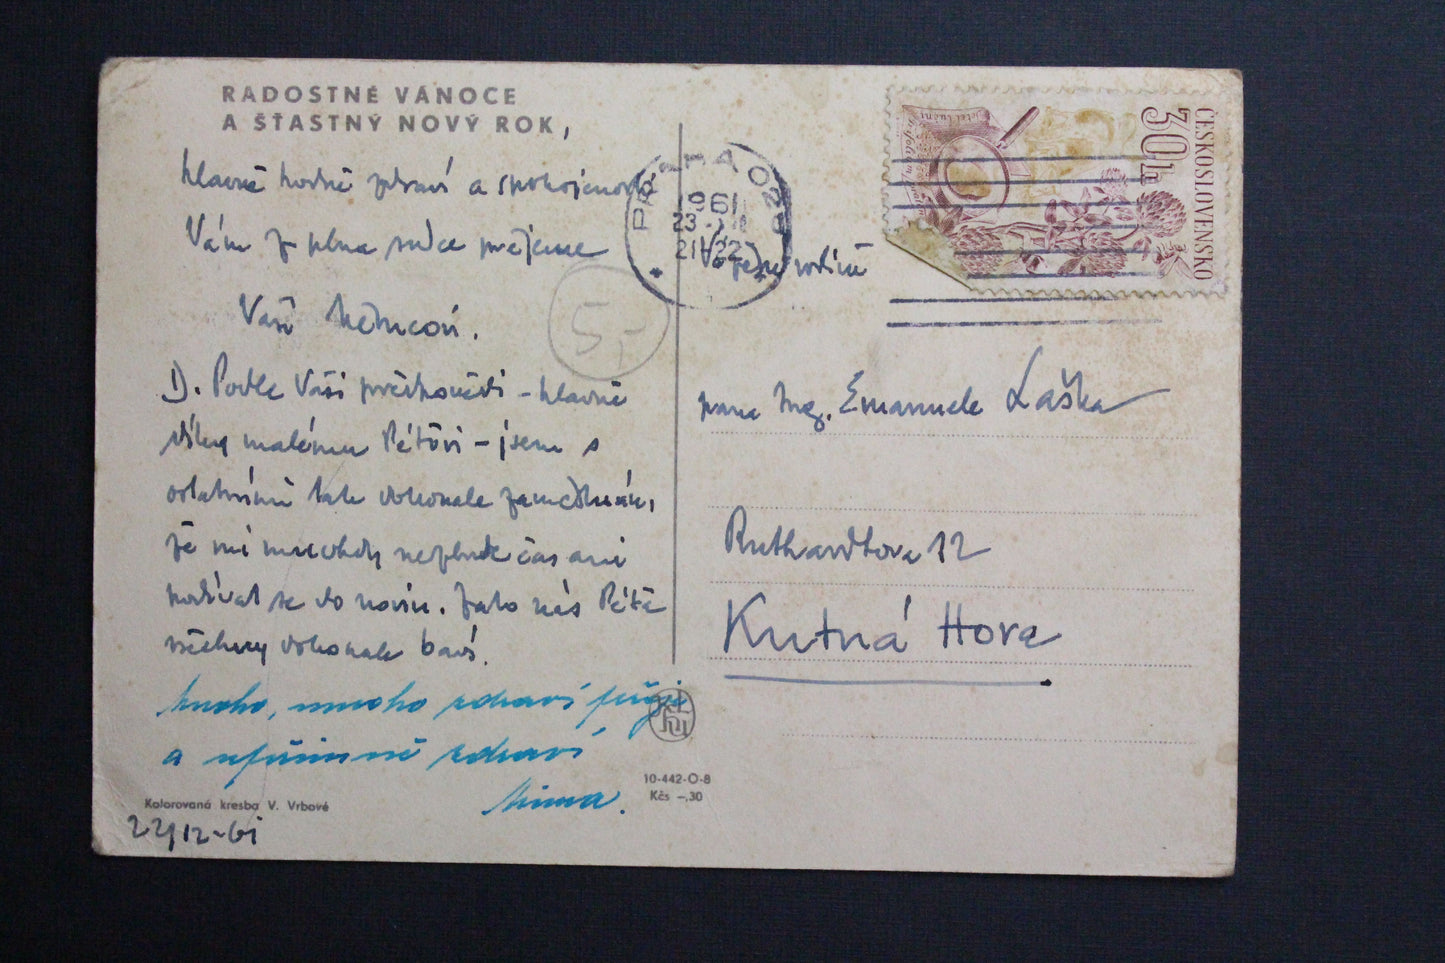 RADOSTNÉ VÁNOCE
A ŠŤASTNÝ NOVÝ ROK,
hlavně hodně zdraví a spokojenosti
Vám z plna srdce přejeme
Vaši
1). Podle Vaší předpovědi – hlavně
díky malému Péťovi – jsem s
ostatními tak dokonale zaměstnán,
že mi mnohdy nezbude čas ani
podívat se do novin. Jako nás Péťa
všechny dokonale baví.
Mnoho, mnoho zdraví přeje
a upřímně zdraví
Mima.
Kolorovaná kresba V. Vrbové
22/12-61
5,-
PRAHA 025
1961
23.XII
21-22
ČESKOSLOVENSKO
30h
jetel luční
Vážené rodině
pana Ing. Emanuele Laška
Ruthardtova 12
Kutná Hora
10-442-O-8
Kčs –,30